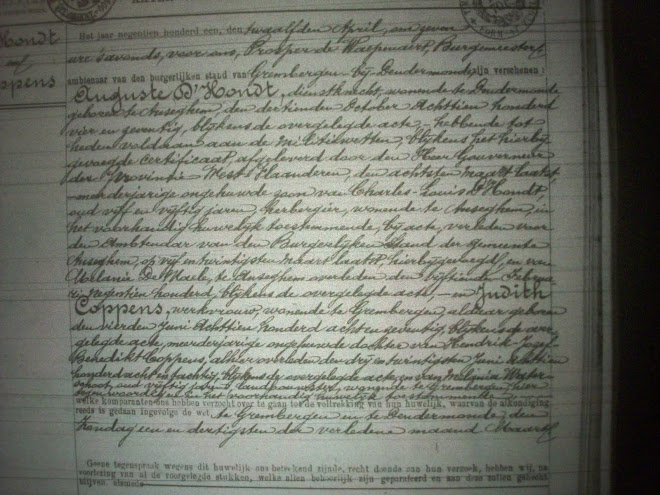 Hondt
en
Coppens
Het jaar negentien honderd een, den twaalfden April, om zeven
ure 's avonds, voor ons, Prosper de Waepenaert, Burgemeester
ambtenaar van den burgerlijken stand van Grembergen - bij Dendermonde zijn verschenen:
Auguste D'Hondt, dienstknecht, wonende te Dendermonde
geboren te Anseghem, den dertienden October Achttien honderd
vier en zeventig, blijkens de overgelegde acte, - hebbende tot
heden voldaan aan de militiewetten, blijkens het hierbij
gevoegde certificaat, afgeleverd door den Heer Gouverneur
der Provintie West-Vlaanderen, den achtsten maart laatst,
meerderjarige ongehuwde zoon van Charles-Louis D'Hondt,
oud vijf en vijftig jaren, herbergier, wonende te Anseghem, in
het voorhandig huwelijk toestemmende, bij acte, verleden voor
den Ambtenaar van den Burgerlijken Stand der Gemeente
Anseghem, op vijf en twintigsten maart laatst hierbijgevoegd, en van
Melanie De Maele, te Anseghem overleden den vijftienden Februa-
rij negentien honderd, blijkens de overgelegde acte, - en Judith
Coppens, werkvrouw, wonende te Grembergen, aldaar geboren
den vierden Juni Achttien honderd acht en zeventig, blijkens de over-
gelegde acte, meerderjarige ongehuwde dochter van Hendrik Jozef
Benedikt Coppens, alhier overleden den drij en twintigsten Juni achttien
honderd acht en tachtig, blijkens de overgelegde acte, en van
oud vijftig jaren, wonende te Grembergen, hier
tegenwoordig en in het voorhandig huwelijk toestemmende
welke komparanten ons hebben verzocht over te gaan tot de voltrekking van hun huwelijk, waarvan de afkondiging
reeds is gedaan ingevolge de wet, te Grembergen en te Dendermonde, den
Zondag een en dertigsten der verledene maand Maart.
Geene tegenspraak wegens dit huwelijk ons beteekend zijnde, recht doende aan hun verzoek, hebben wij, na
voorlezing van al de voorgelegde stukken, welke allen behoorlijk zijn geparafeerd en aan deze zullen gehecht
blijven, alsmede